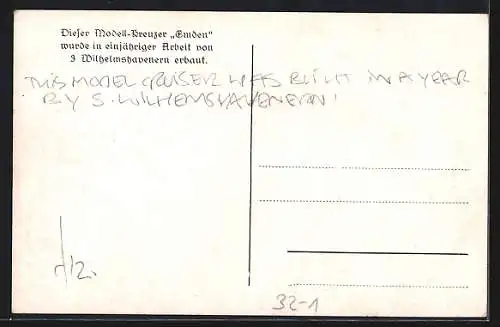 Dieser Modell-Kreuzer „Emden"
wurde in einjähriger Arbeit von
3 Wilhelmshavenern erbaut.
THIS MODEL CRUISER WAS BUILT IN A YEAR
BY S. WILHEMSHAVENERN!
32-1